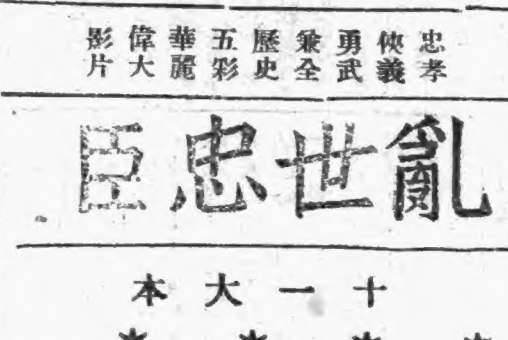 忠孝 俠義 勇武 兼全 歷史 五彩 華麗 偉大 影片
亂世忠臣
十一大本